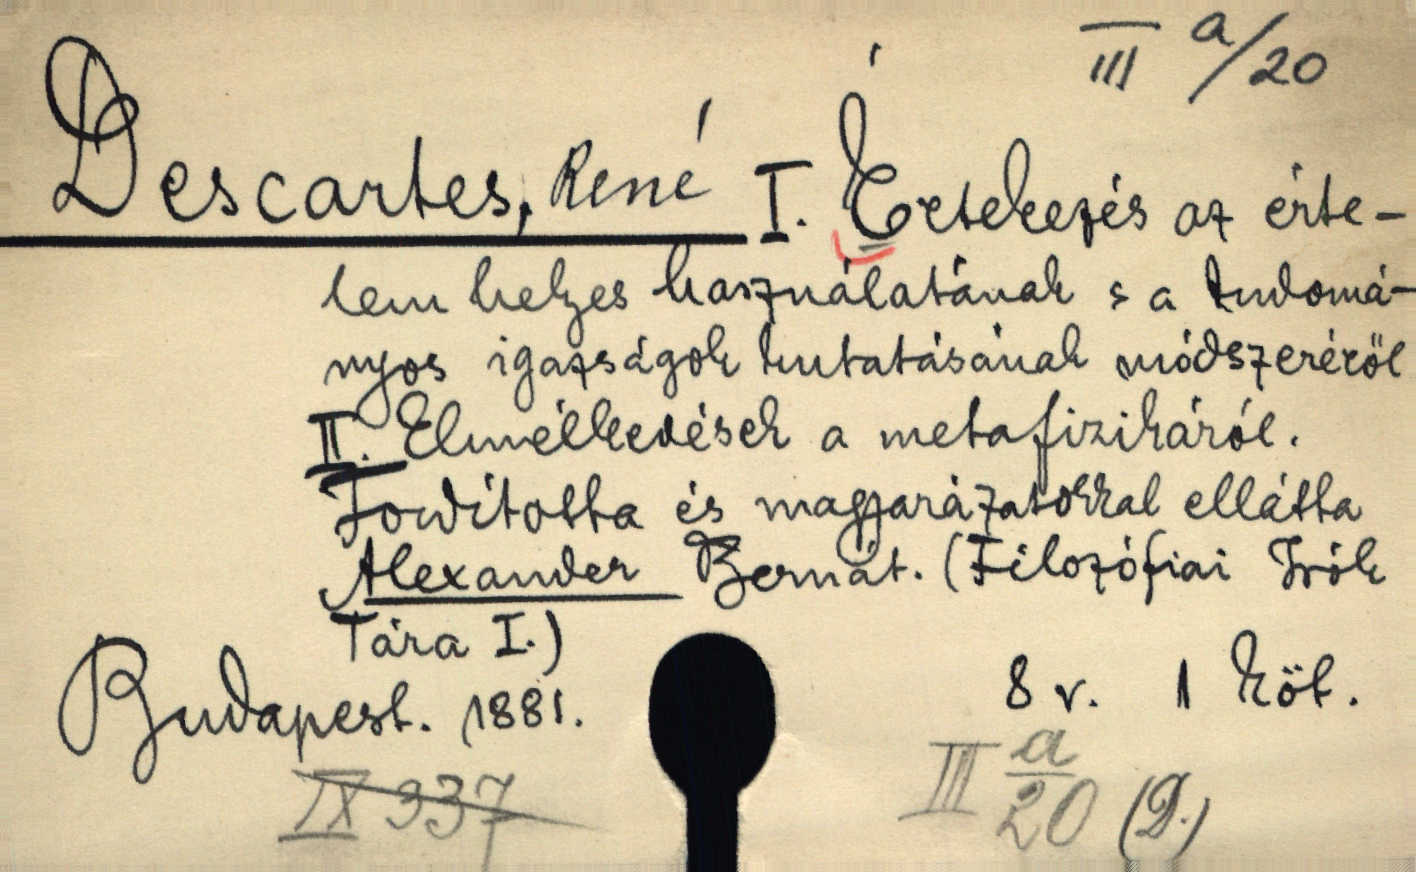 III a/20
Descartes, René I. Értekezés az érte-
lem helyes használatának s a tudomá-
nyos igazságok kutatásának módszeréről
II. Elmélkedések a metafizikáról.
Fordította és magyarázatokkal ellátta
Alexander Bernát. (Filozófiai Irók
Tára I.)
Budapest. 1881. 8 r. 1 köt.
IX 337 III a/20 (D.)